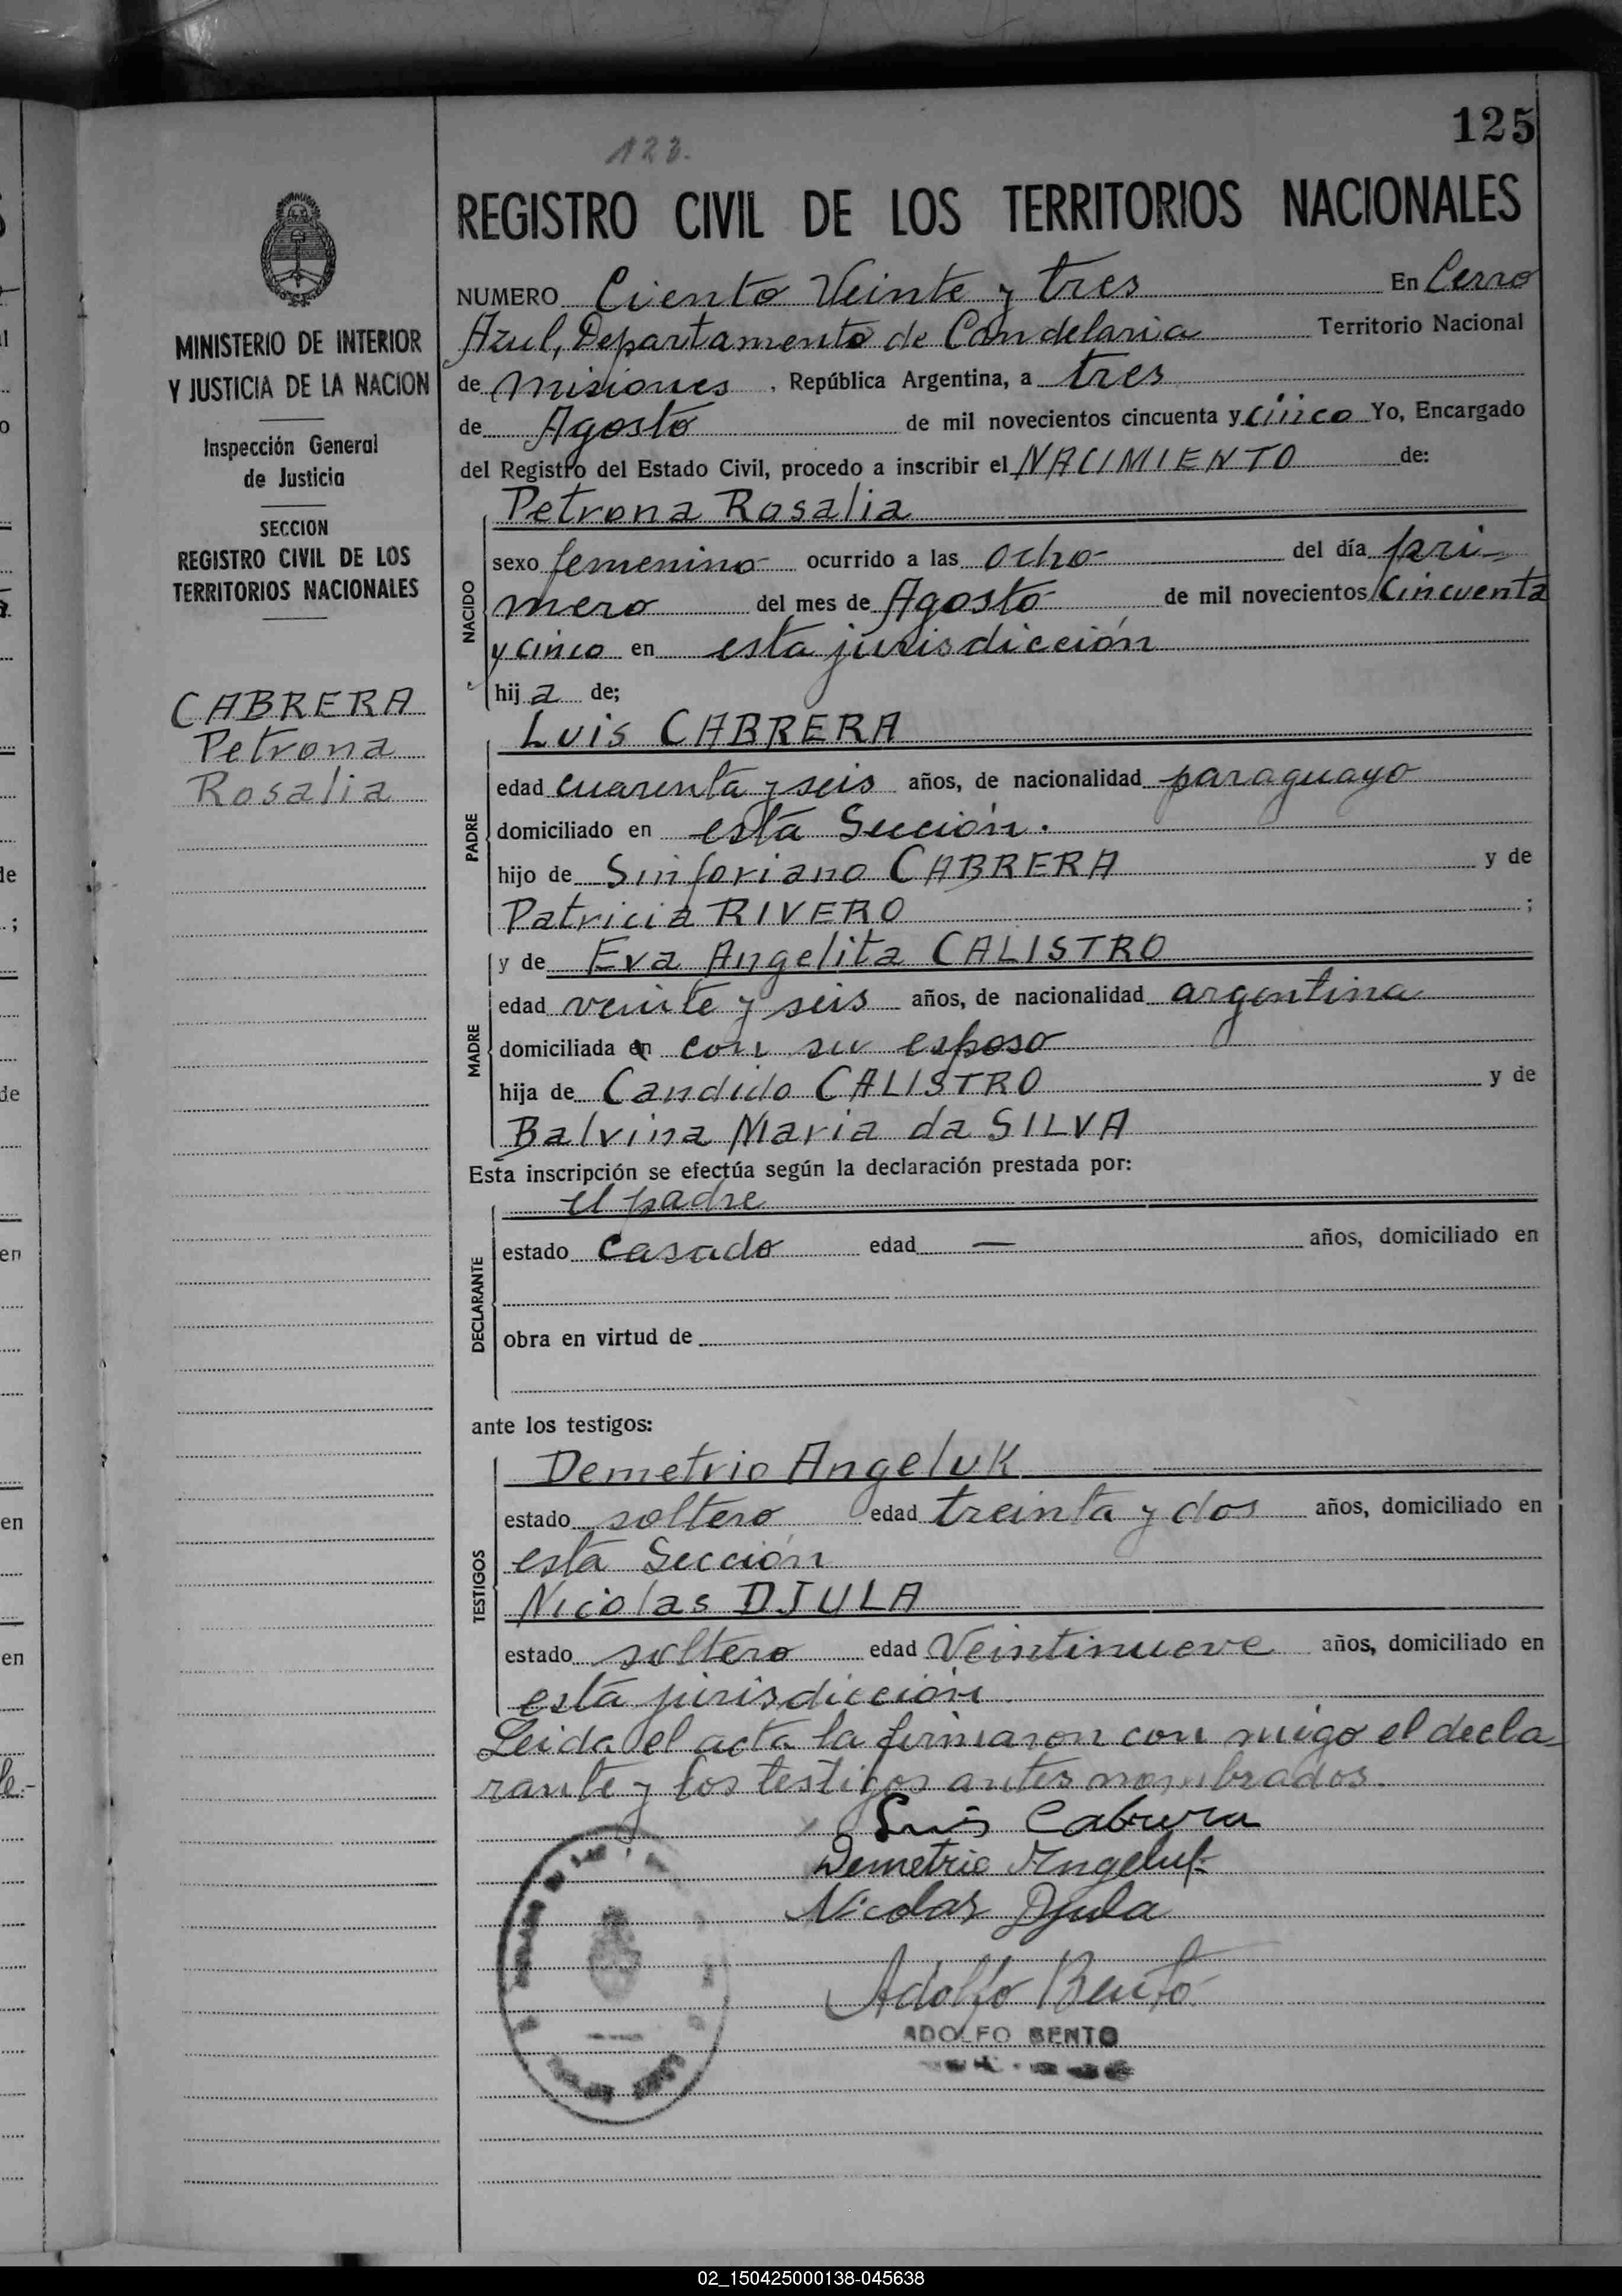 125
123.
REGISTRO CIVIL DE LOS TERRITORIOS NACIONALES
MINISTERIO DE INTERIOR
Y JUSTICIA DE LA NACION
Inspección General
de Justicia
SECCION
REGISTRO CIVIL DE LOS
TERRITORIOS NACIONALES
CABRERA
Petrona
Rosalia
NUMERO Ciento Veinte y tres En Cerro
Azul, Departamento de Candelaria Territorio Nacional
de Misiones, República Argentina, a tres
de Agosto de mil novecientos cincuenta y cinco Yo, Encargado
del Registro del Estado Civil, procedo a inscribir el NACIMIENTO de:
NACIDO
Petrona Rosalia
sexo femenino ocurrido a las ocho del día pri-
mero del mes de Agosto de mil novecientos Cincuenta
y cinco en esta jurisdicción
hija de;
PADRE
Luis CABRERA
edad cuarenta y seis años, de nacionalidad paraguayo
domiciliado en esta Sección.
hijo de Sinforiano CABRERA y de
Patricia RIVERO ;
MADRE
y de Eva Angelita CALISTRO
edad veinte y seis años, de nacionalidad argentina
domiciliada en con su esposo
hija de Candido CALISTRO y de
Balvina Maria da SILVA
Esta inscripción se efectúa según la declaración prestada por:
DECLARANTE
el padre
estado casado edad — años, domiciliado en
obra en virtud de
ante los testigos:
TESTIGOS
Demetrio Angeluk
estado soltero edad treinta y dos años, domiciliado en
esta Sección
Nicolas DJULA
estado soltero edad Veintinueve años, domiciliado en
esta jurisdicción.
Leida el acta la firmaron con migo el decla-
rante y los testigos antes nombrados.
Luis Cabrera
Demetrio Angeluk
Nicolas Djula
Adolfo Bento
ADOLFO BENTO
02_150425000138-045638